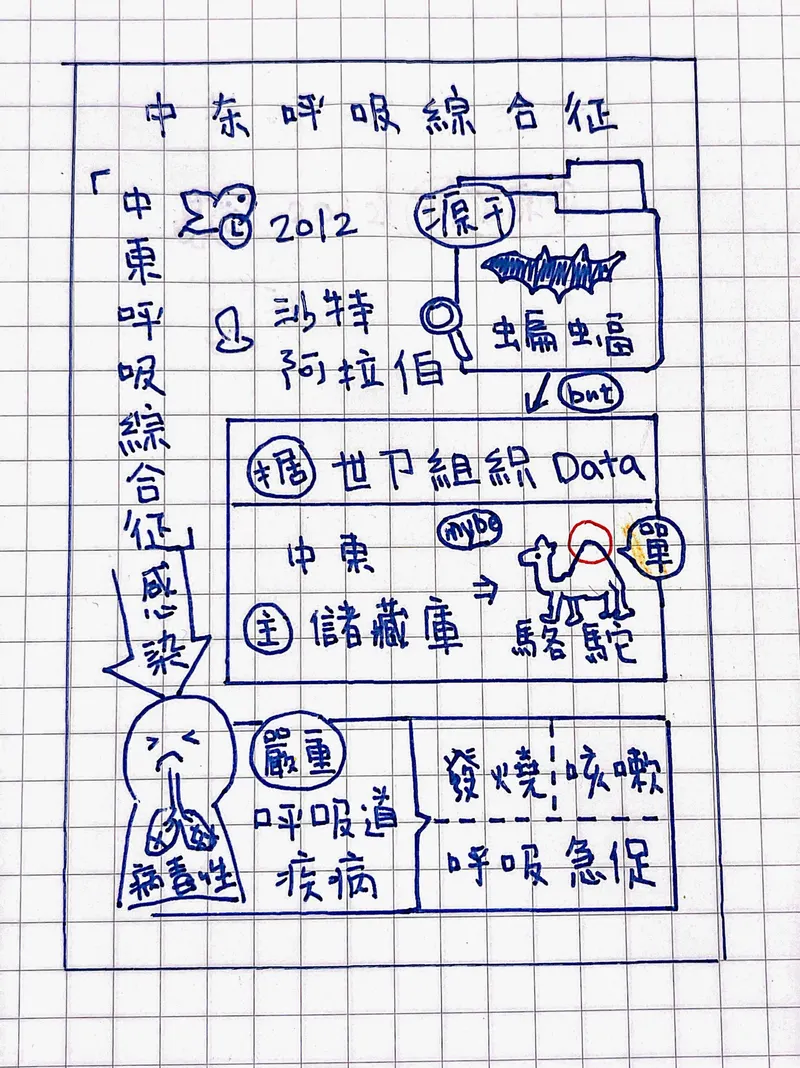 中东呼吸綜合征
「中東呼吸綜合征」感染
2012
沙特
阿拉伯
源于
蝙蝠
but
据世卫組織Data
中東
mybe
單
主儲藏庫
駱駝
嚴重
呼吸道
疾病
病毒性
發燒
咳嗽
呼吸急促